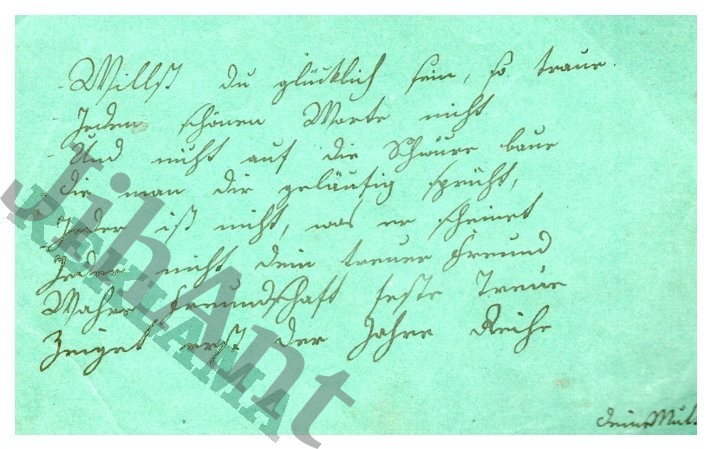 Willst du glücklich sein, so traue
Jedem schönen Worte nicht
Und nicht auf die Schwüre baue
die man dir geläufig spricht,
Jeder ist nicht, was er scheinet
Jeder nicht dein treuer Freund
Wahre Freundschaft feste Treue
Zeiget erst der Jahre Reihe
deine Mutt
JihAnt
REKLAMA